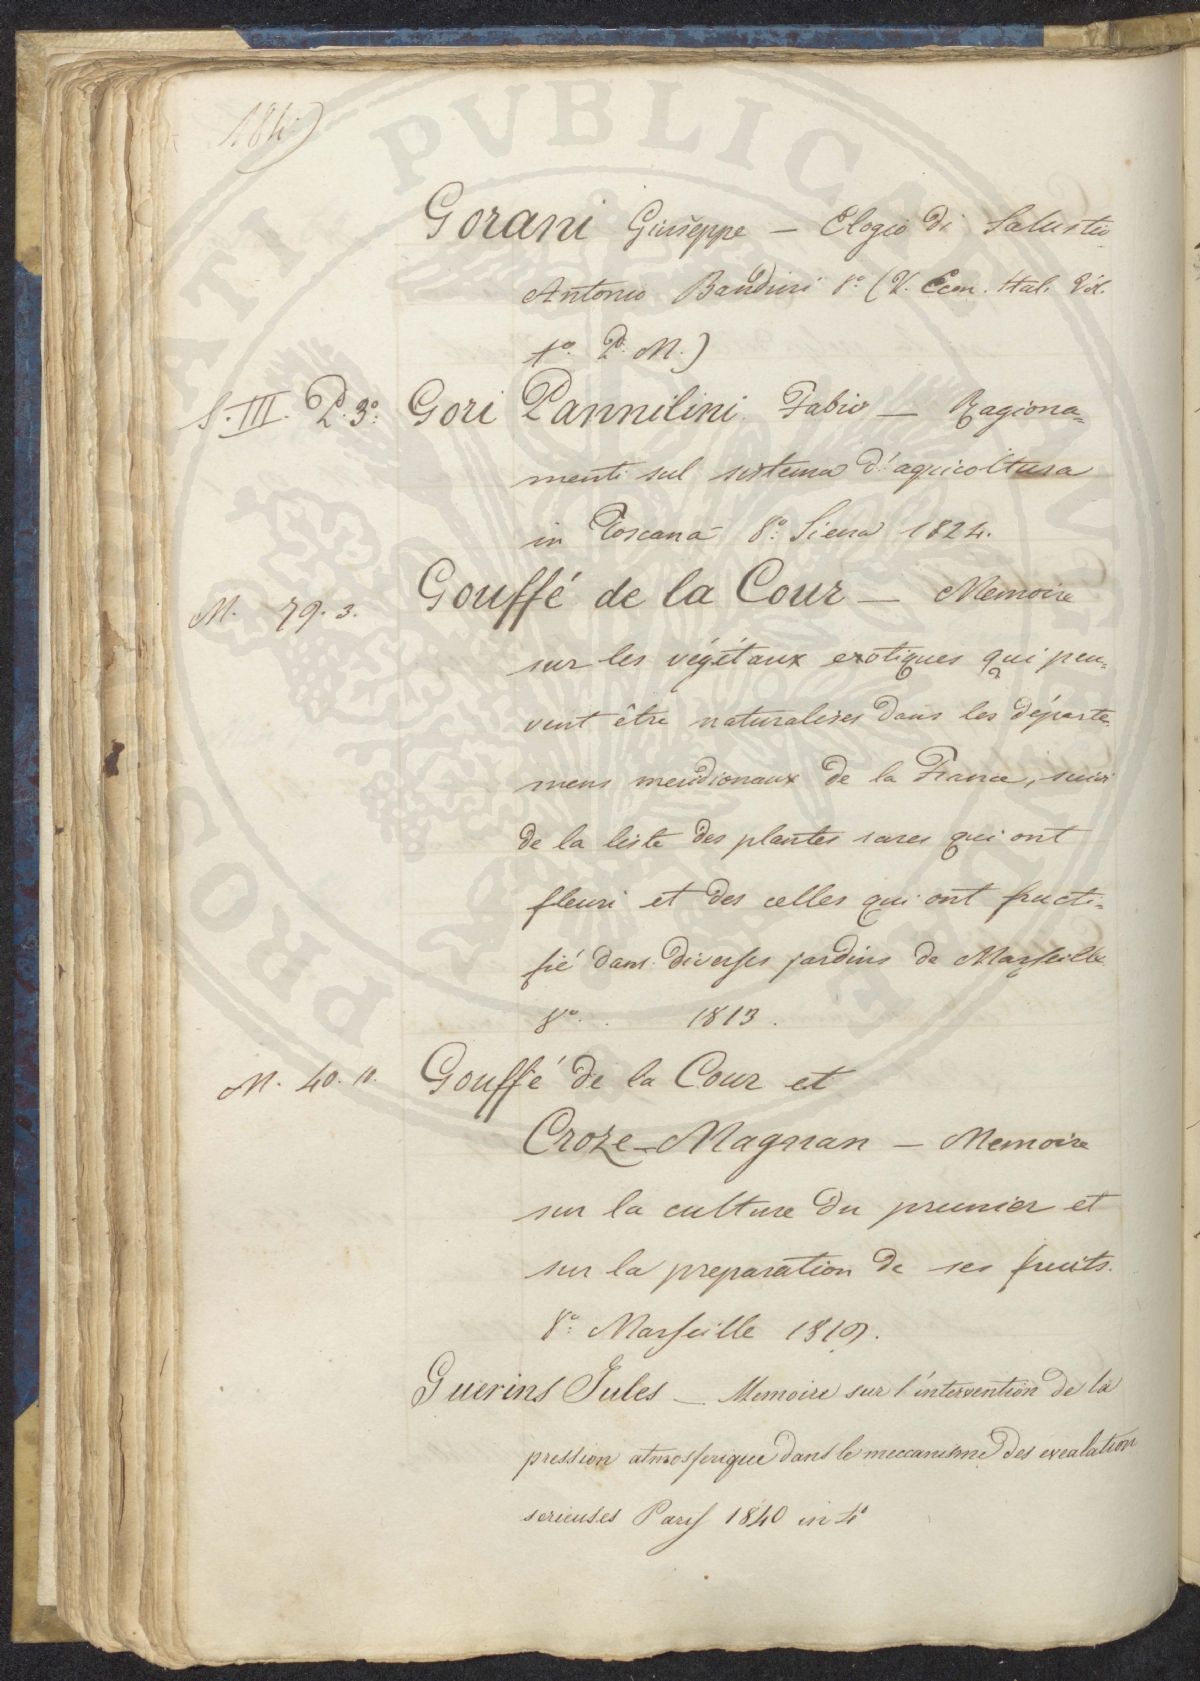 184)
Gorani Giuseppe — Elogio di Salustio
Antonio Bandini 8.º (V. Econ. Ital. Vol.
1.º P. M.)
S. III. P. 3.º Gori Pannilini Fabio — Ragiona=
menti sul sistema d'agricoltura
in Toscana 8.º Siena 1824.
M. 79. 3. Gouffé de la Cour — Memoire
sur les végétaux exotiques qui peu=
vent être naturalises dans les départe=
mens meridionaux de la France, suivi
de la liste des plantes rares qui ont
fleuri et des celles qui ont fructi=
fié dans diverses jardins de Marseille
8.º 1813.
M. 40. 10. Gouffé de la Cour et
Croze-Magnan — Memoire
sur la culture du prunier et
sur la preparation de ses fruits.
8.º Marseille 1819.
Guerins Jules — Memoire sur l'intervention de la
pression atmosferique dans le meccanisme des exealation
serieuses Paris 1840 in 4º
PROPRIETATI PVBLICAE